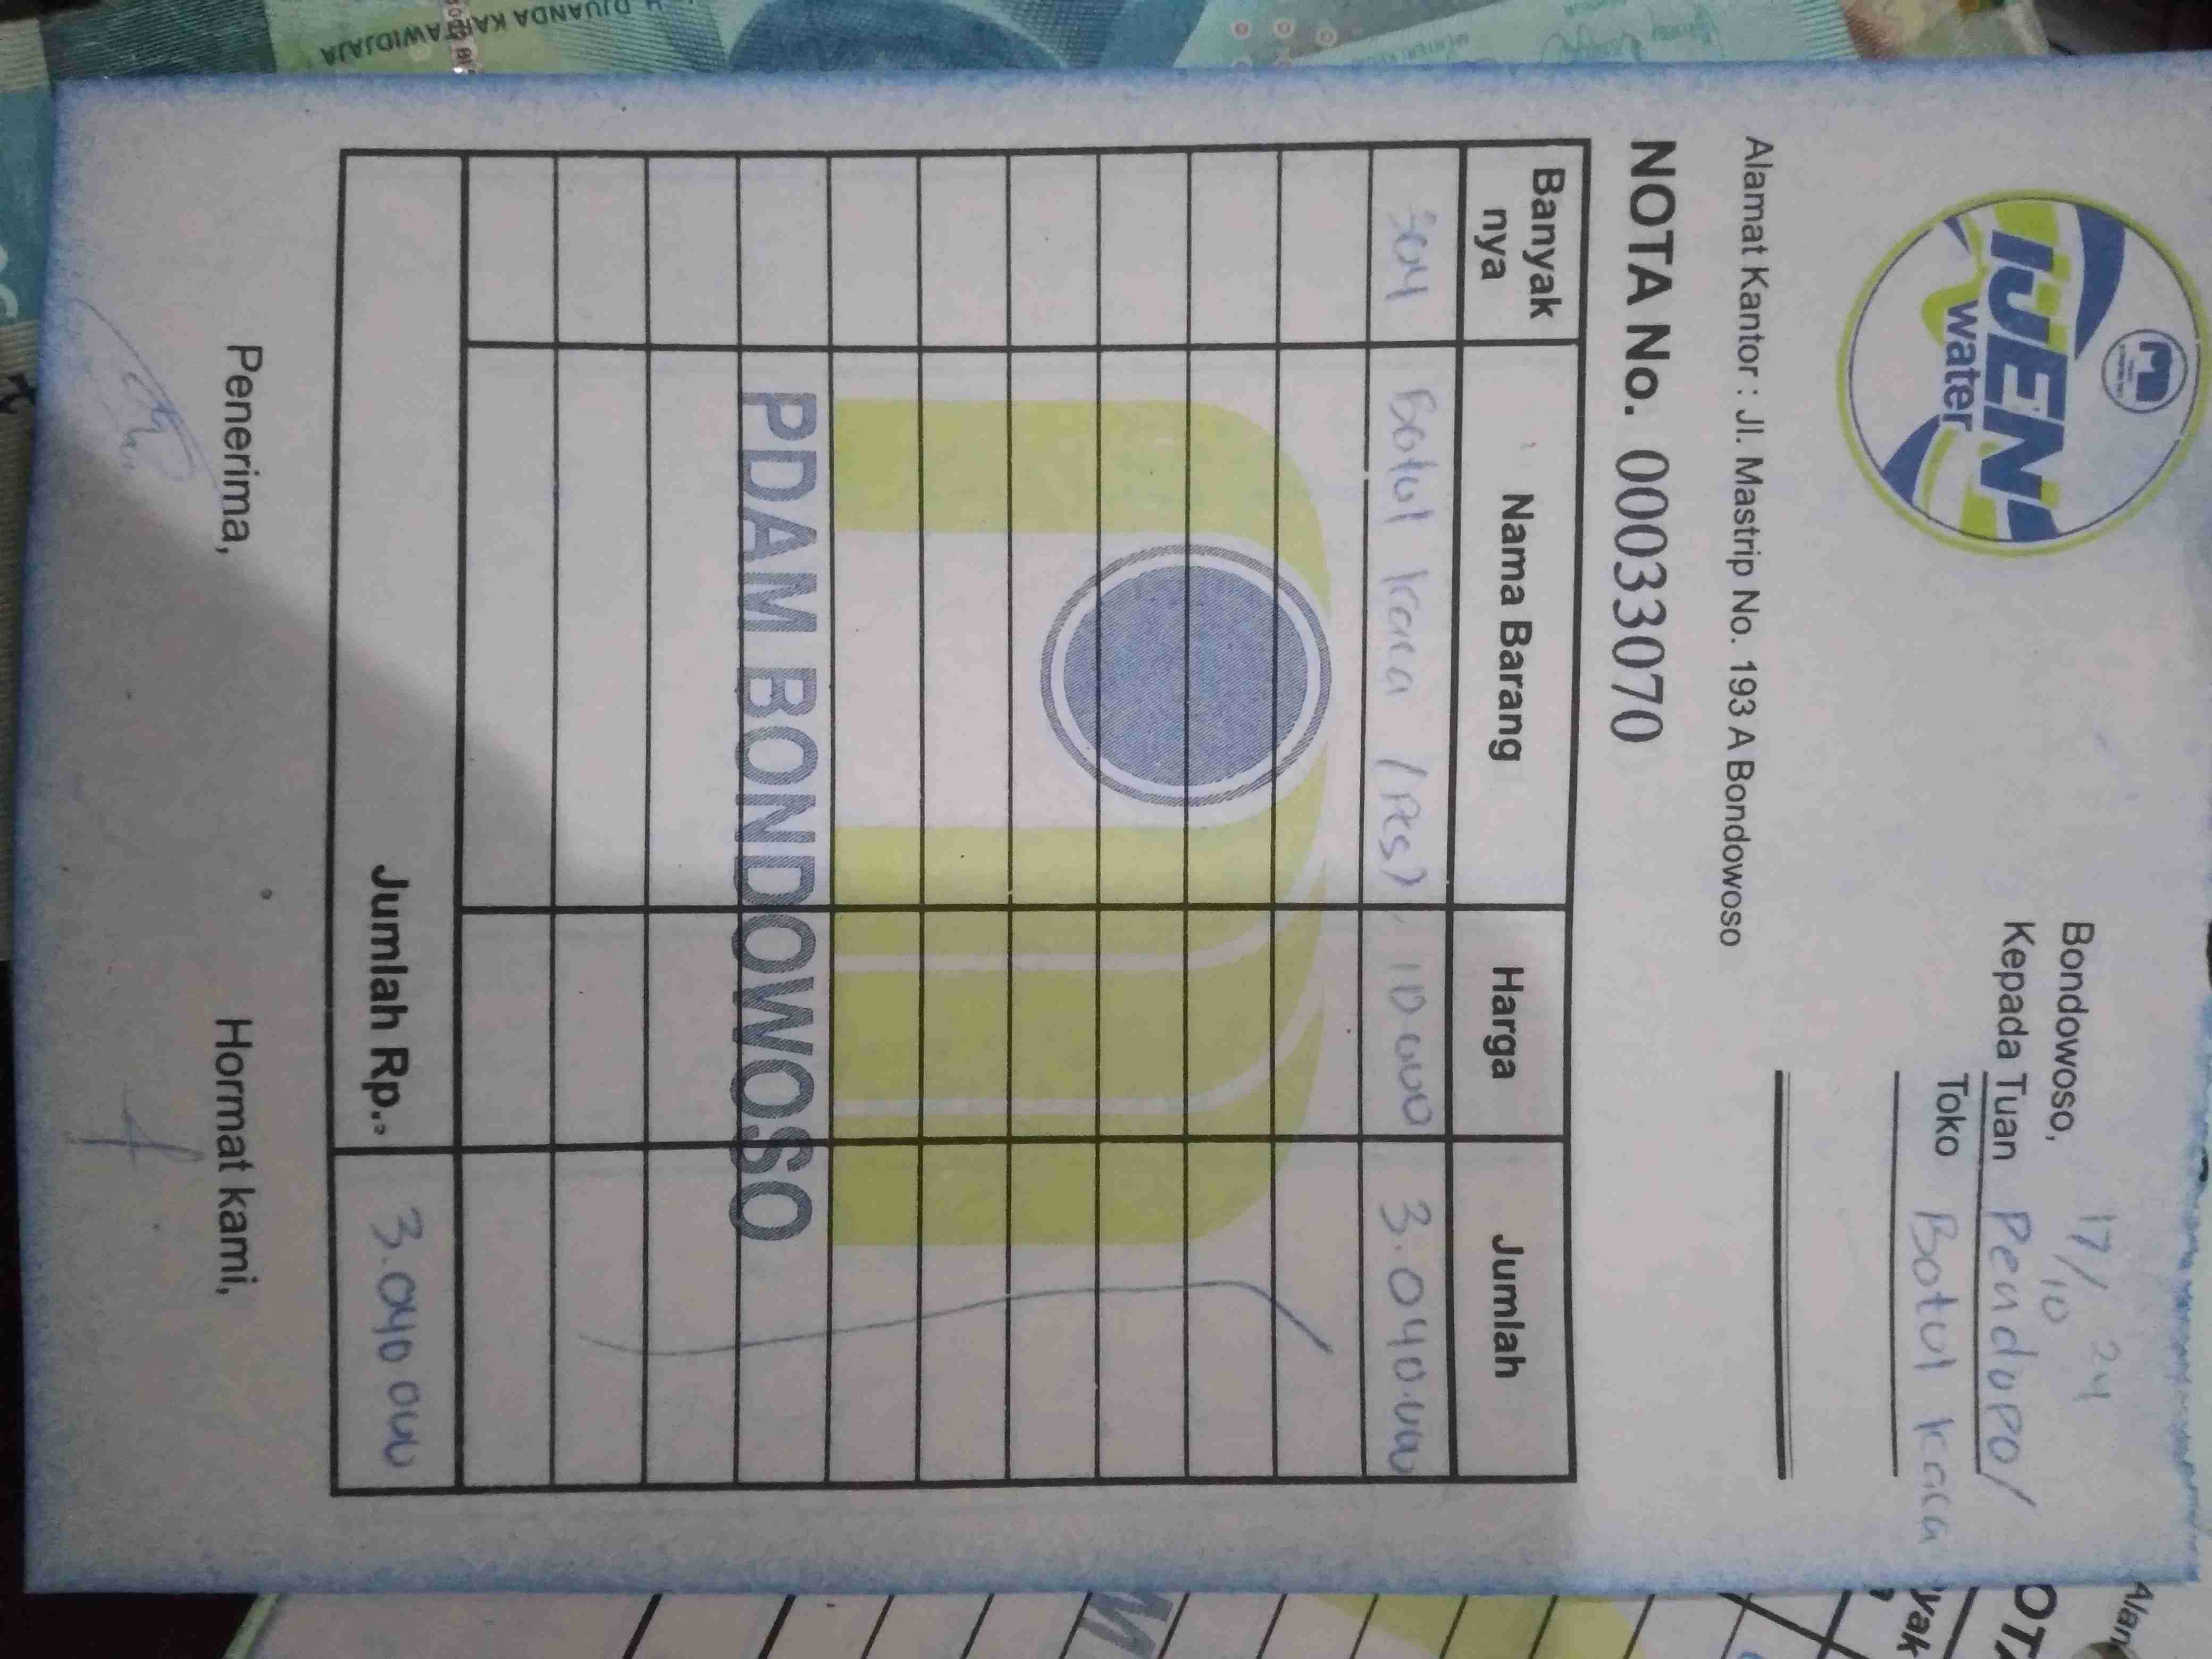 IJEN
water
Bondowoso, 17/10 24
Kepada Tuan Pendopo/
Toko Botol kaca
Alamat Kantor : Jl. Mastrip No. 193 A Bondowoso
NOTA No. 00033070
Banyak nya Nama Barang Harga Jumlah
304 Botol kaca (Pcs) 10.000 3.040.000
PDAM BONDOWOSO
Jumlah Rp. 3.040.000
Penerima, Hormat kami,
DJUANDA KARTAWIDJAJA